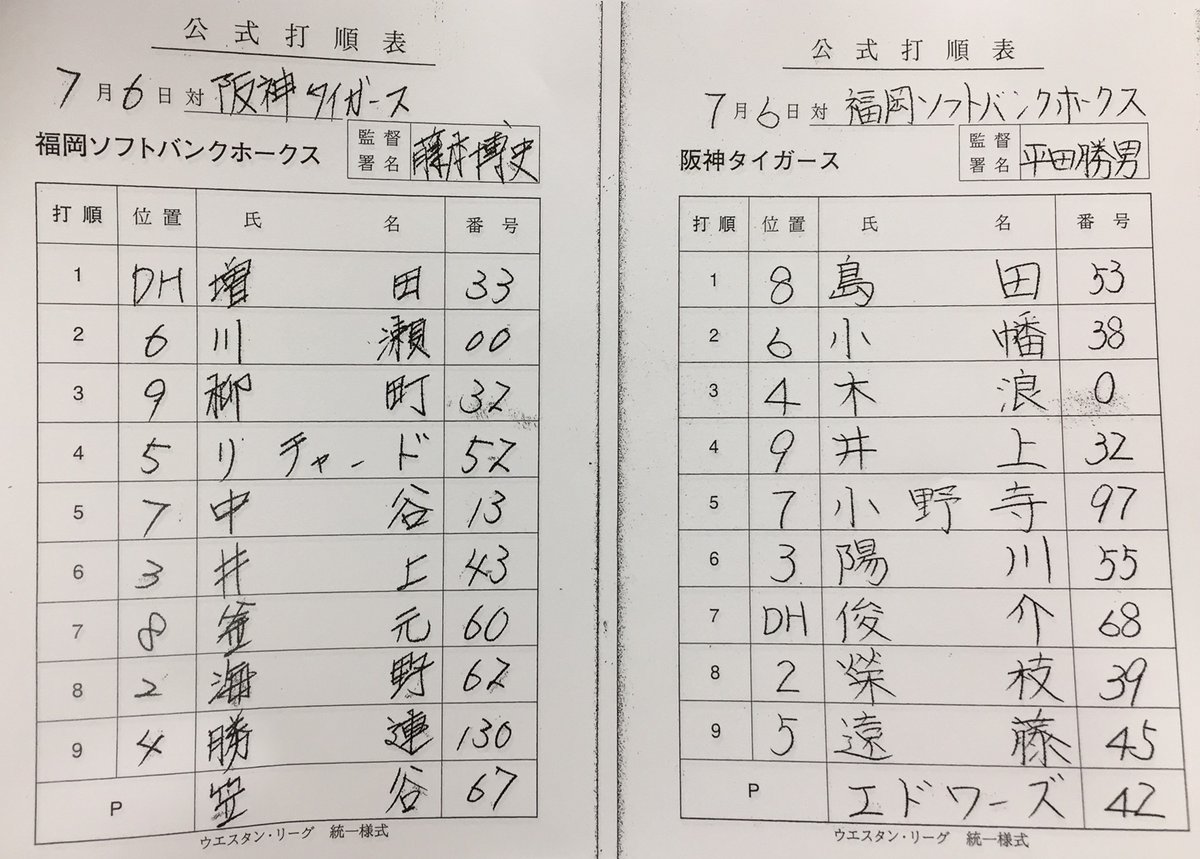 公式打順表
7月6日対 阪神タイガース
福岡ソフトバンクホークス 監督署名 藤本博史
打順 位置 氏名 番号
1 DH 増田 33
2 6 川瀬 00
3 9 柳町 32
4 5 リチャード 52
5 7 中谷 13
6 3 井上 43
7 8 釜元 60
8 2 海野 62
9 4 勝連 130
P 笠谷 67
ウエスタン・リーグ 統一様式
公式打順表
7月6日対 福岡ソフトバンクホークス
阪神タイガース 監督署名 平田勝男
打順 位置 氏名 番号
1 8 島田 53
2 6 小幡 38
3 4 木浪 0
4 9 井上 32
5 7 小野寺 97
6 3 陽川 55
7 DH 俊介 68
8 2 榮枝 39
9 5 遠藤 45
P エドワーズ 42
ウエスタン・リーグ 統一様式